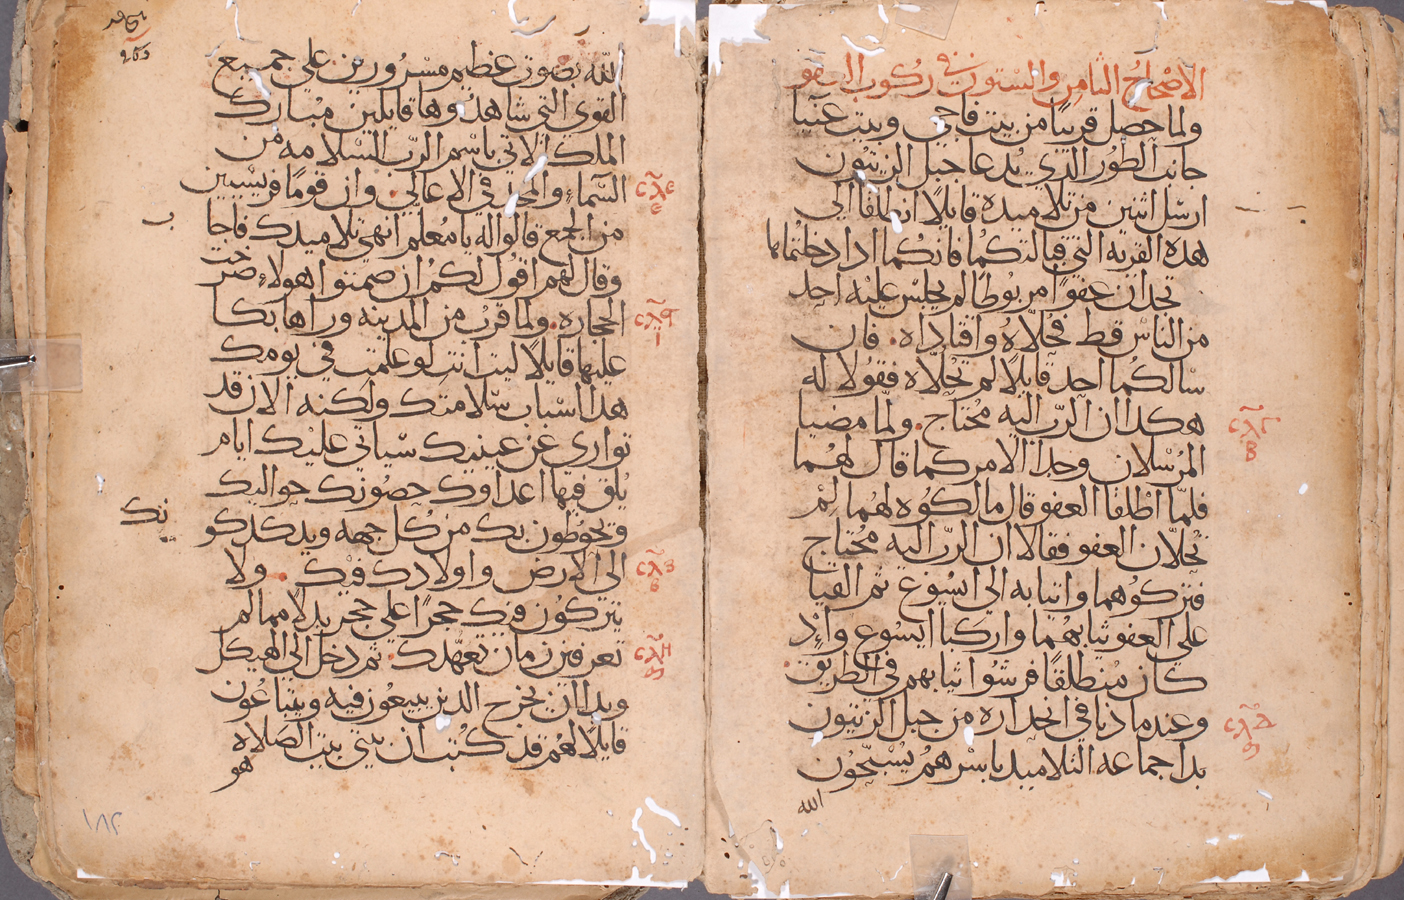 الاصحاح الثامن والستون في ركوب العفو
ولما حصل قريبًا من بيت فاجي وبيت عنيا
جانب الطور الذي يدعا جبل الزيتون
ارسل اثنين من تلاميده قايلًا انطلقا الى
هده القريه التي قبالتكما فانكما ادا دخلتماها
تجدان عفوًا مربوطًا لم يجلس عليه احد
من الناس قط فحلاه واقتاداه. فان
سالكما احد قايلًا لم تحلاه فقولا له
هكدا ان الرب اليه محتاج. ولما مضيا
المرسلان وجدا الامر كما قال لهما
فلما اطلقا العفو قال مالكوه لهما لم
تحلان العفو فقالا ان الرب اليه محتاج
فتركوهما واتيا به الى ايسوع ثم القيا
على العفو ثيابهما واركبا ايسوع واد
كان منطلقًا فرشوا ثيابهم في الطريق.
وعندما دنا في انحداره من جبل الزيتون
بدا جماعه التلاميد باسرهم يسبحون
الله
الله بصوت عظيم مسرورين على جميع
القوى التي شاهدوها قايلين مبارك
الملك الاتي باسم الرب السلامه من
السماء والمجد في الاعالي. وان قومًا فريسيين
من الجمع قالوا له يا معلم انهي تلاميدك فاجابـ
وقال لهم اقول لكم ان صمتوا هولاء صرخت
الحجاره. ولما قرب من المدينه وراها بكا
عليها قايلًا ليت انت لو علمت في يومك
هدا اسباب سلامتك ولكنه الان قد
توارى عن عينيك سياتي عليك ايام
يلق فيها اعداوك حصونك حواليك
ويحوطون بك من كل جهه ويدكدكونك
الى الارض واولادك فيك. ولا
يتركون فيك حجرًا على حجر بدلًا مما لم
تعرفين زمان تعهدك. ثم دخل الى الهيكل
وبدا ان يخرج الدين يبيعون فيه ويبتاعون
قايلًا لهم قد كتب ان بيتي بيت الصلاه
هو
١٨٢